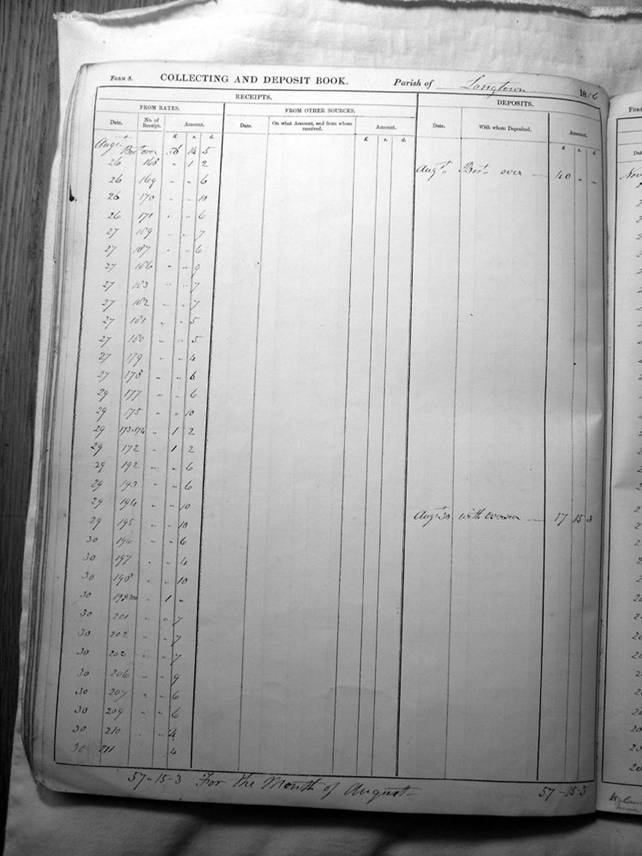 FORM 8. COLLECTING AND DEPOSIT BOOK. Parish of Longtown 18
RECEIPTS. DEPOSITS.
FROM RATES. FROM OTHER SOURCES.
Date. No of Receipt. Amount. Date. On what Account, and from whom received. Amount. Date. With whom Deposited. Amount.
£ s. d. £ s. d. £ s. d.
Augt 56 14 5
26 168 - 1 2 Augt Brot over 40 - -
26 169 - - 6
26 170 - - 10
26 171 - - 6
27 - - 7
27 187 - - 6
27 186 - - 9
27 183 - - 7
27 182 - - 7
27 181 - - 5
27 180 - - 5
27 179 - - 4
27 178 - -
29 177 - - 6
29 175 - - 10
29 173-174 - 1 2
29 172 - 1 2
29 192 - - 6
29 193 - - 6
29 194 - - 10
29 195 - - 10 Augt 30 with 17 15 3
30 196 - - 6
30 197 - - 4
30 198 - - 10
30 - 1 -
30 201 - - 7
30 202 - - 7
30 202 - - 7
30 206 - - 9
30 207 - - 6
30 209 - - 6
30 210 - - 4
30 211 4
57-15-3 For the Month of August- 57-15-3
FORM
Nov